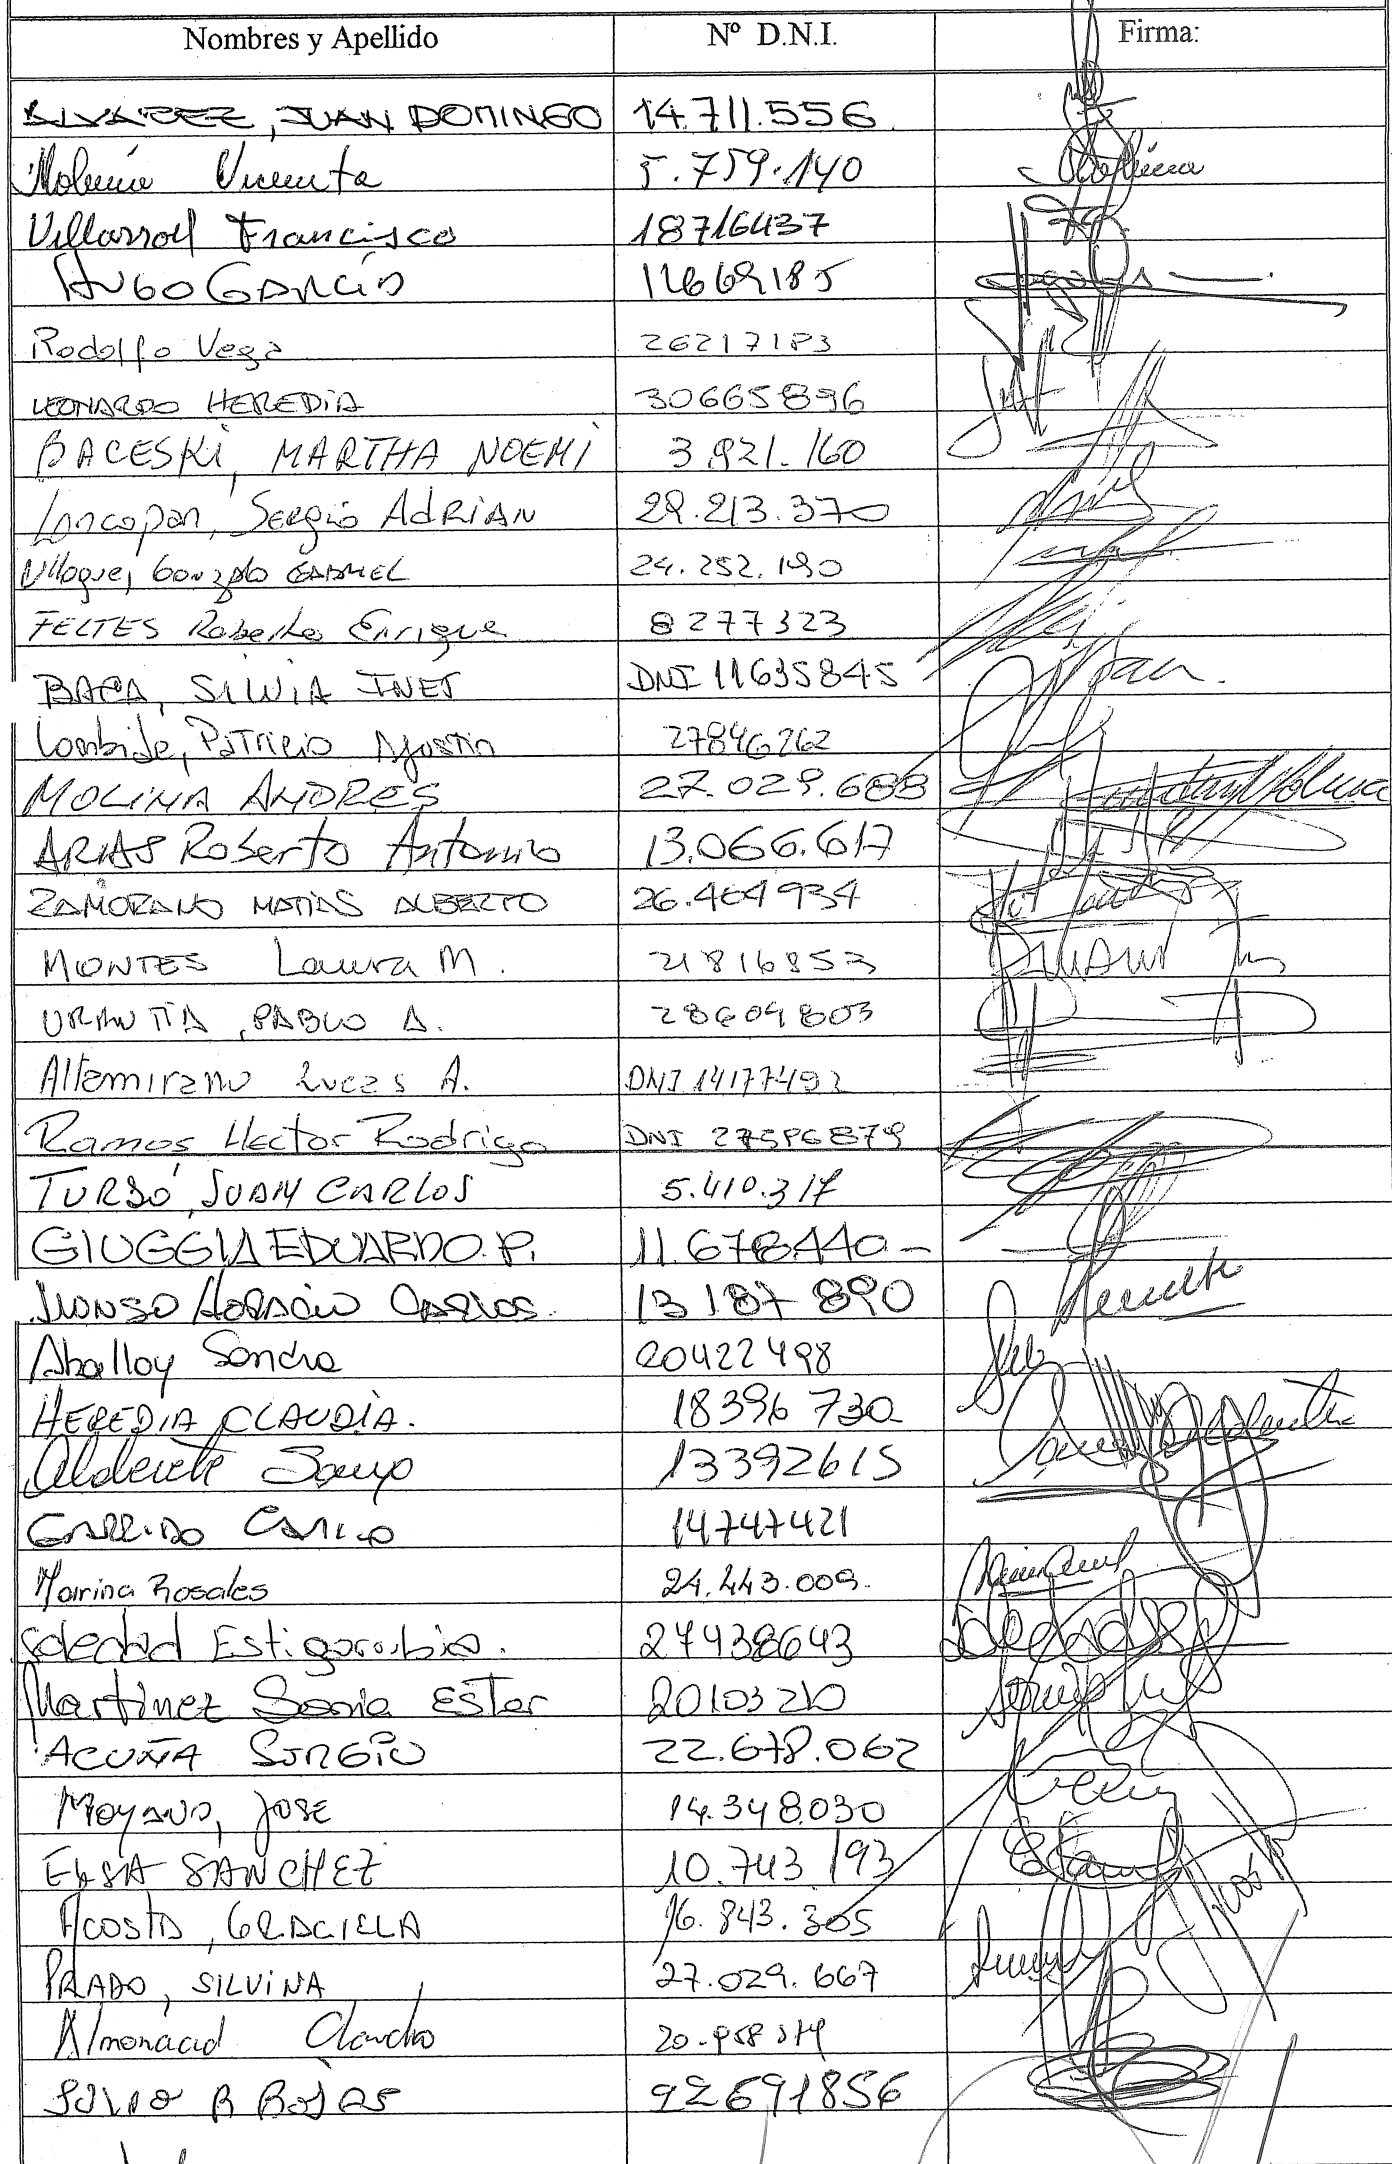 Nombres y Apellido Nº D.N.I. Firma:
ALVAREZ, JUAN DOMINGO 14.711.556
Vicenta 5.759.140
Villarroel Francisco 18716437
HUGO GARCIA
Rodolfo Vega 26217183
LEONARDO HEREDIA 30665896
BACESKI, MARTHA NOEMI 3.921.160
Loncopan, Sergio ADRIAN 29.213.370
Gonzalo GABRIEL 24.252.190
FELTES Roberto Enrique 8277323
BAEA, SILVIA INES DNI 11635845
PATRICIO Agustin 27846262
MOLINA ANDRES 27.029.688
ARIAS Roberto Antonio 13.066.617
ZAMORANO MATIAS ALBERTO 26.464934
MONTES Laura M. 21816853
URRUTIA, PABLO A. 28604803
Altamirano Lucas A. DNI 14177492
Ramos Hector Rodrigo DNI 27596879
TURSÓ, JUAN CARLOS 5.410.317
GIUGGIA EDUARDO P. 11.678.440-
ALONSO HORACIO CARLOS. 13 187 890
Aballoy Sandra 20422498
HEREDIA CLAUDIA. 18396 730
Alderete 13392615
GARRIDO 14747421
Marina Rosales 24.443.009.
Soledad Estigarribia. 27438643
Martinez Sonia Ester 20103210
ACUÑA SERGIO 22.678.062
MOYANO, JOSE 14.348.030
ELSA SANCHEZ 10.743.193
ACOSTA, GRACIELA 16.843.305
PRADO, SILVINA 27.029.667
Almonacid Claudio
SILVIO R ROJAS 92691856